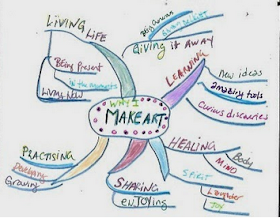 LIVING LIFE
Being Present
in the moments
LIVING NOW
Giving it AWAY
LEARNING
new ideas
amazing tools
Curious discoveries
WHY I
MAKE ART
HEALING
Body
MIND
SPIRIT
Laughter
JOY
SHARING
enJoying
PRACTISING
Growing